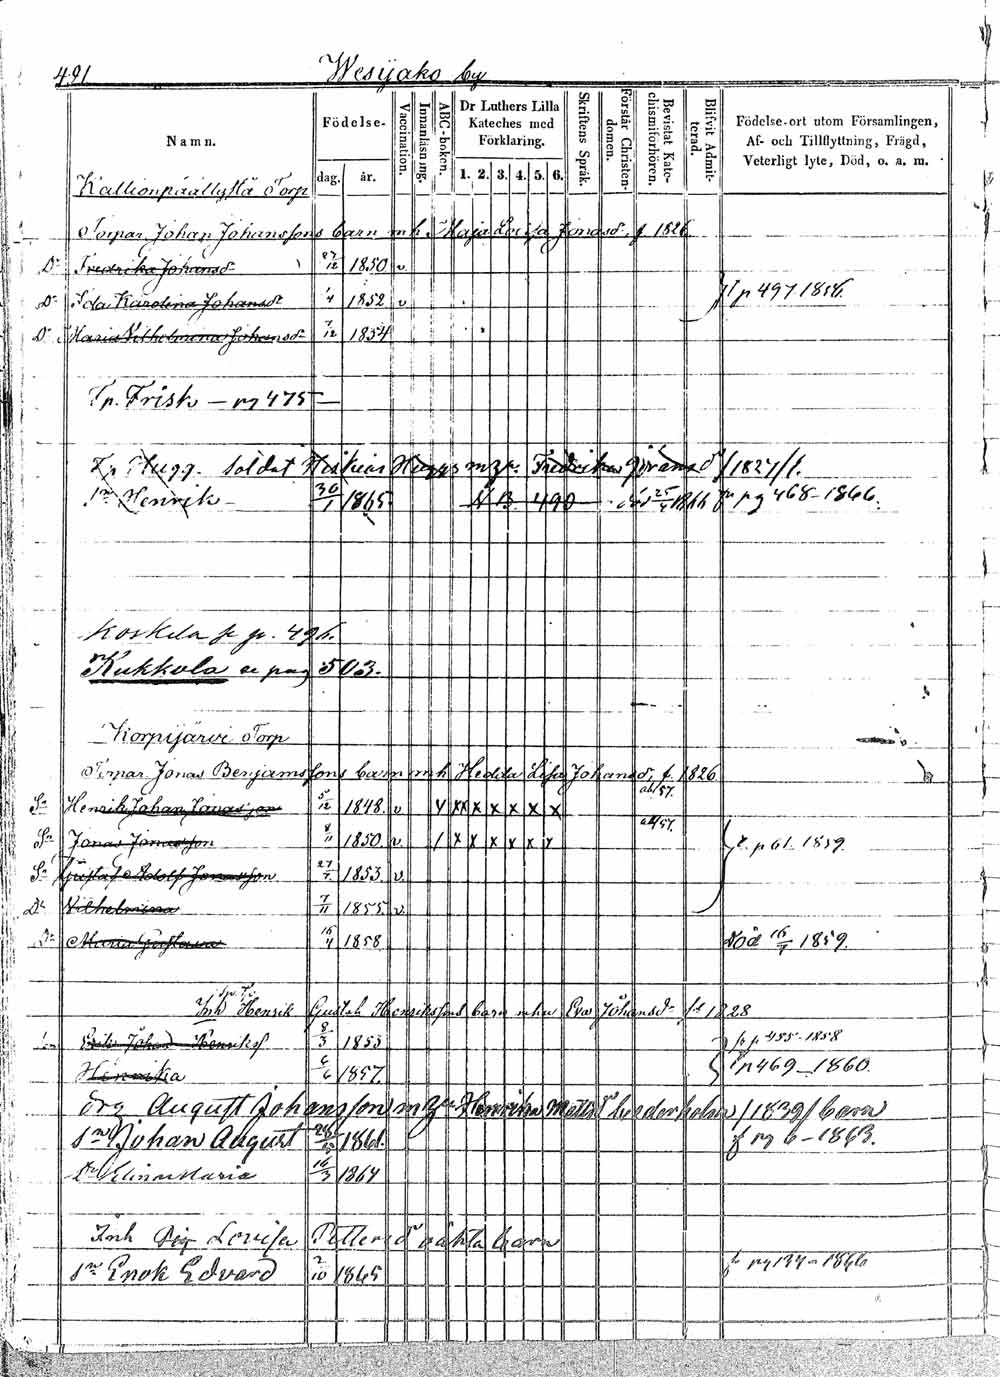 491 Wesijako by
Namn. Födelse- dag. år. Vaccination. Innanläsning. ABC-boken. Dr Luthers Lilla Kateches med Förklaring. 1. 2. 3. 4. 5. 6. Skriftens Språk. Förstår Christendomen. Bevistat Katechismiförhören. Blifvit Admitterad. Födelse-ort utom Församlingen, Af- och Tillflyttning, Frägd, Veterligt lyte, Död, o. a. m.
Kallionpäällyttä Torp
Torpar. Johan Johanssons barn m h Maja Lovisa Jonasd. f. 1826
Dr Fredrika Johansdr 27/12 1850 v
Dr Ida Karolina Johansdr 1/4 1852 v p 497 1856.
Dr Maria Vilhelmina Johansdr 7/12 1854
Tp. Frisk – pg 475 –
Tp Hugg. Soldat Huggs m z Fredrika Göransdr /1827/
Sn Henrik 30/1 1865 N B 490 död 25/4 1866 pg 468–1866.
Koskela p.
Kukkola se pag 503.
Korpijärvi Torp
Torpar. Jonas Benjamssons barn m h Hedda Lisa Johansd. f. 1826
Sn Henrik Johan Jonasson 5/12 1848. v x x x x x x x
Sn Jonas Jonasson 8/11 1850. v. x x x x x p 61. 1859.
Sn Gustaf Adolf Jonasson 27/7 1853. v.
Dr Vilhelmina 7/11 1855. v.
Dr Maria Gustava 16/4 1858 Död 16/7 1859.
Inh Henrik Gustaf Henrikssons barn mhu Eva Johansdr 1828
Erik Johan Henriks 8/3 1855 p 455–1858
Henrika 6/6 1857. p 469–1860.
drg August Johansson m z Henrika Matsdr /1839/ barn
Sn Johan August 1861. pg 6–1863.
Dr Elina Maria 16/3 1864
Inh Pig Lovisa Pettersdr oäkta barn
Sn Enok Edvard 2/10 1865 1866